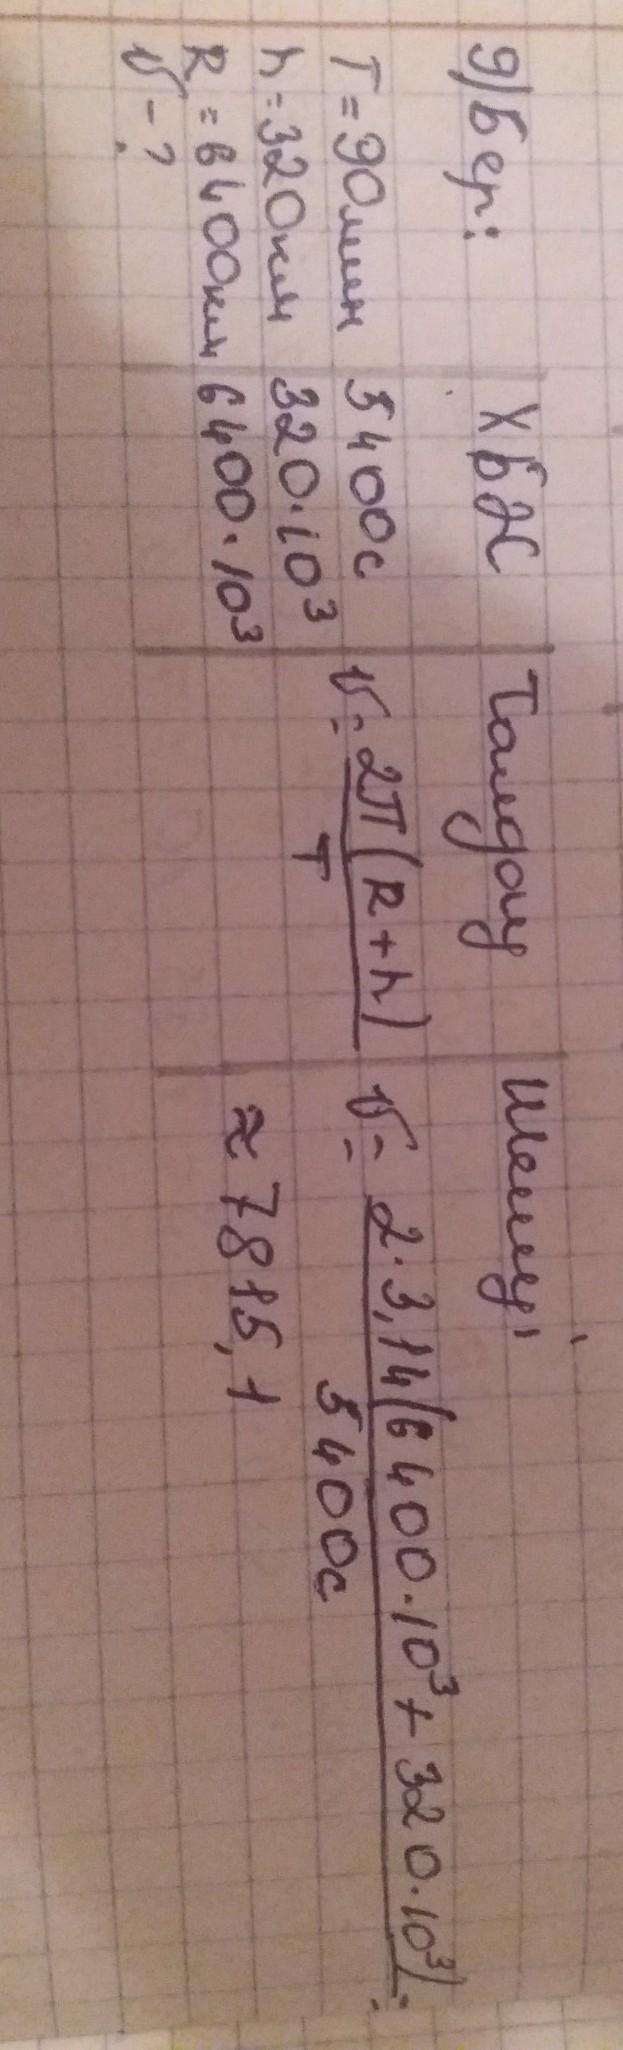 9) Бер:
T = 90мин
h = 320км
R = 6400км
υ - ?
ХБЖ
5400с
320·10³
6400·10³
Талдау
υ = 2π(R+h)
T
Шешуі
υ = 2·3,14(6400·10³ + 320·10³) =
5400с
≈ 7815,1